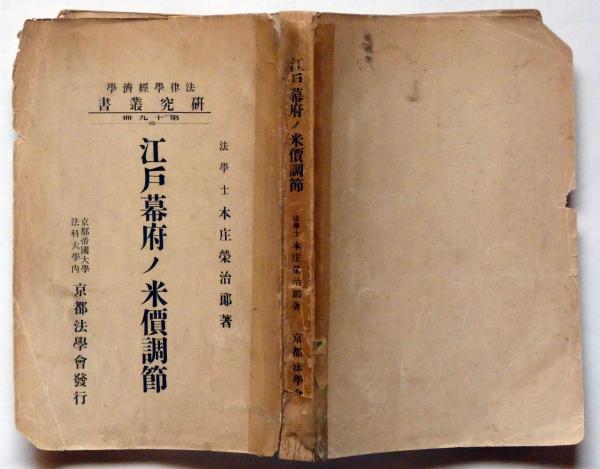 法律學經濟學
研究叢書
第十九冊
法學士 本庄榮治郎著
江戸幕府ノ米價調節
京都帝國大學
法科大學內
京都法學會發行
江戸幕府ノ米價調節
法學士 本庄榮治郎著
京都法學會